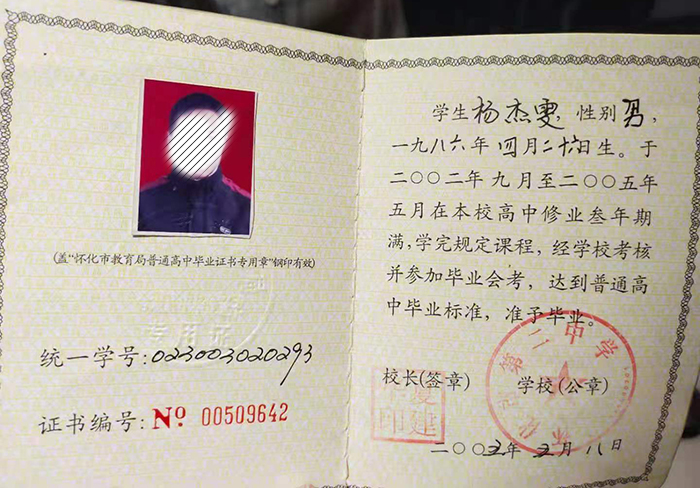 (盖“怀化市教育局普通高中毕业证书专用章”钢印有效)
专用章
统一学号:023003020293
证书编号:No 00509642
学生杨杰雯,性别男,
一九八六年四月二十六日生。于
二〇〇二年九月至二〇〇五年
五月在本校高中修业叁年期
满,学完规定课程,经学校考核
并参加毕业会考,达到普通高
中毕业标准,准予毕业。
校长(签章) 学校(公章)
第二中学
夏建印
二〇〇五年五月八日